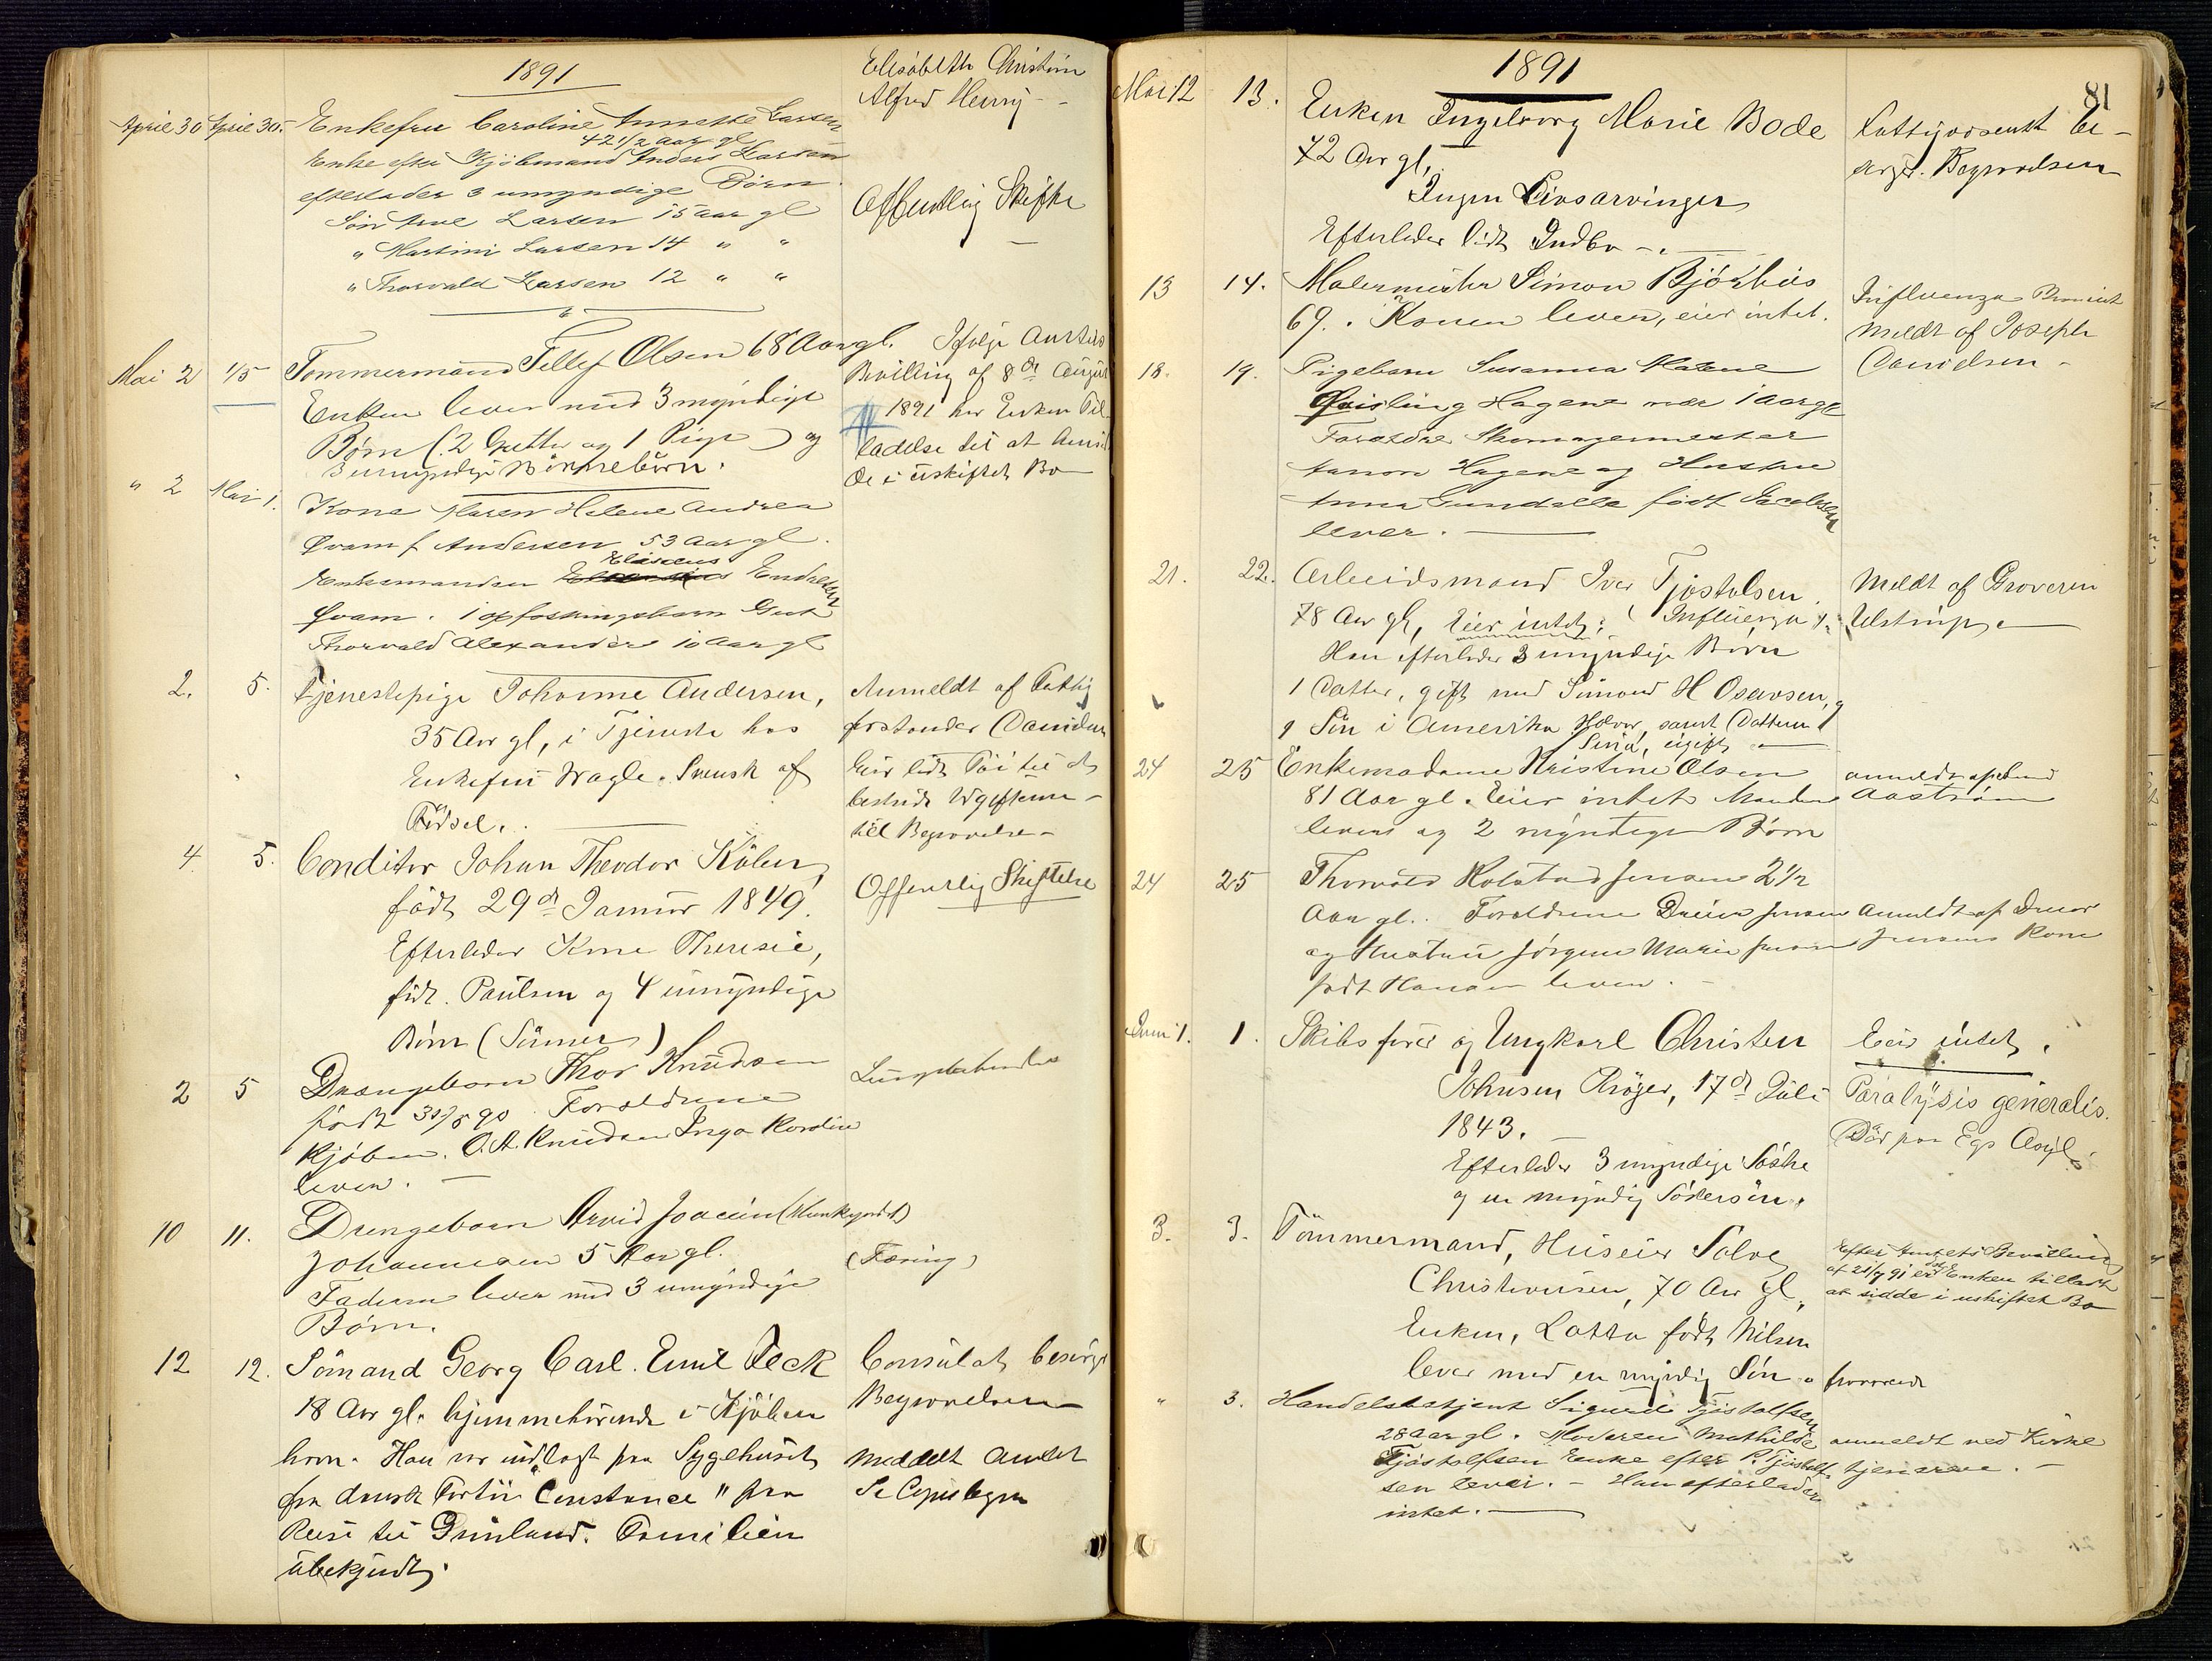 1891
Elisabeth Christine
Alfred Henry -
April 30 April 30. Enkefru Caroline Annette Larsen
42 1/2 Aar gl
Enke efter Kjöbmand Anders Larsen
efterlader 3 umyndige Börn.
Sön Arne Larsen 15 aar gl
" Martini Larsen 14 " "
" Thorvald Larsen 12 " "
Offentlig Skifte
Mai 2 1/5 Tømmermand Tellef Olsen 68 Aar gl.
Enken lever med 3 myndige
Børn (2 Gutter og 1 Pige) og
3 umyndige Börnebörn.
Ifølge Amtets
Bevilling af 8de August
1891 har Enken Til-
ladelse til at
de i uskiftet Bo
" 2 Mai 1. Kone Maren Helene Andrea
Qvam f. Andersen 53 Aar gl.
Eliseus
Enkemanden Endresen
Qvam. 1 opfostringsbarn Gut
Thorvald Alexander 10 Aar gl
2. 5. Tjenestepige Johanne Andersen,
35 Aar gl, i Tjeneste hos
Enkefru Wragle. Svensk af
Födsel.
Anmeldt af Fattig
forstander Danielsen
Eier lidt Töi til at
bestride Udgifterne
till Begravelse
4. 5. Conditor Johan Theodor Köhler,
födt 29de Januar 1849.
Efterlader Kone Theresie,
födt Paulsen og 4 umyndige
Börn (Sönner)
Offentlig Skiftelse
2 5 Drengebarn Thor Knudsen
födt 30/8 90. Forældrene
Kjöbm. O. A. Knudsen Inga Karoline
lever.
Lungebetændelse
10 11. Drengebarn Arvid Joacim (Munkejordet)
Johannesen 5 Aar gl.
Faderen lever med 3 umyndige
Børn.
(Tæring)
12 12. Sömand Georg Carl Emil Feck
18 Aar gl. hjemmehörende i Kjöben
havn. Han var indlagt paa Sygehuset
fra dansk Fartöi "Constance" paa
Reise til Grönland. Familien
ubekjendt.
Consulat besörge
Begravelsen
Meddelt Amtet
Se Copiebogen
1891
81
Mai 12 13. Enken Ingeborg Marie Bode
72 Aar gl,
Ingen Livsarvinger
Efterlader lidt Indbo
Fattigvæsenet be-
sörger Begravelsen
13 14. Malermester Simon Björkhus
69. Konen lever, eier intet.
Influenza
Meldt af Joseph
Danielsen
18. 19. Pigebarn Susanna Malene
Qvisling Hagene nær 1 aar gl
Forældre Skomagermester
Aanon Hagene og Hustru
Anna Gundelle født Jacobsen
lever.
21. 22. Arbeidsmand Iver Tjøstolsen.
78 Aar gl, Eier intet; (Influenza).
Han efterlader 3 myndige Børn
1 Datter, gift med Simond H Osevsen,
1 Sön i Amerika Halvor, samt Datteren
Siria, ugift
Meldt af Graveren
Ulstrup,
24 25 Enkemadame Kristine Olsen
81 Aar gl. Eier intet. Manden
lever og 2 myndige Børn
anmeldt af
Aaström
24 25 Thorvald Holstad Jensen 2 1/2
Aar gl. Foreldrene Dreier Jensen
og Hustru Jørgine Marie Jensen
født Hansen lever.
Anmeldt af Dreier
Jensens Kone
Juni 1. 1. Skibsfører og Ungkarl Christen
Johnsen Krøger, 17de Juli
1843.
Efterlader 3 myndige Söstre
og en myndig Södersön.
Eier intet.
Paralysis generalis.
Död paa Egs Asyl
3. 3. Tömmermand, Huseier Salve
Christensen, 70 Aar gl.
Enken, Lotta født Nilsen
lever med en myndig Sön
Efter Amtets Bevilling
af 21/7 91 er Enken tilladt
at sidde i uskiftet Bo
" 3. Handelsbetjent Sigurd Tjøstolfsen
28 aar gl. Moderen Mathilde
Tjøstolfsen Enke efter P. Tjøstolf-
sen lever. - Han efterlader
intet.
anmeldt ved Kirke
tjeneren. -